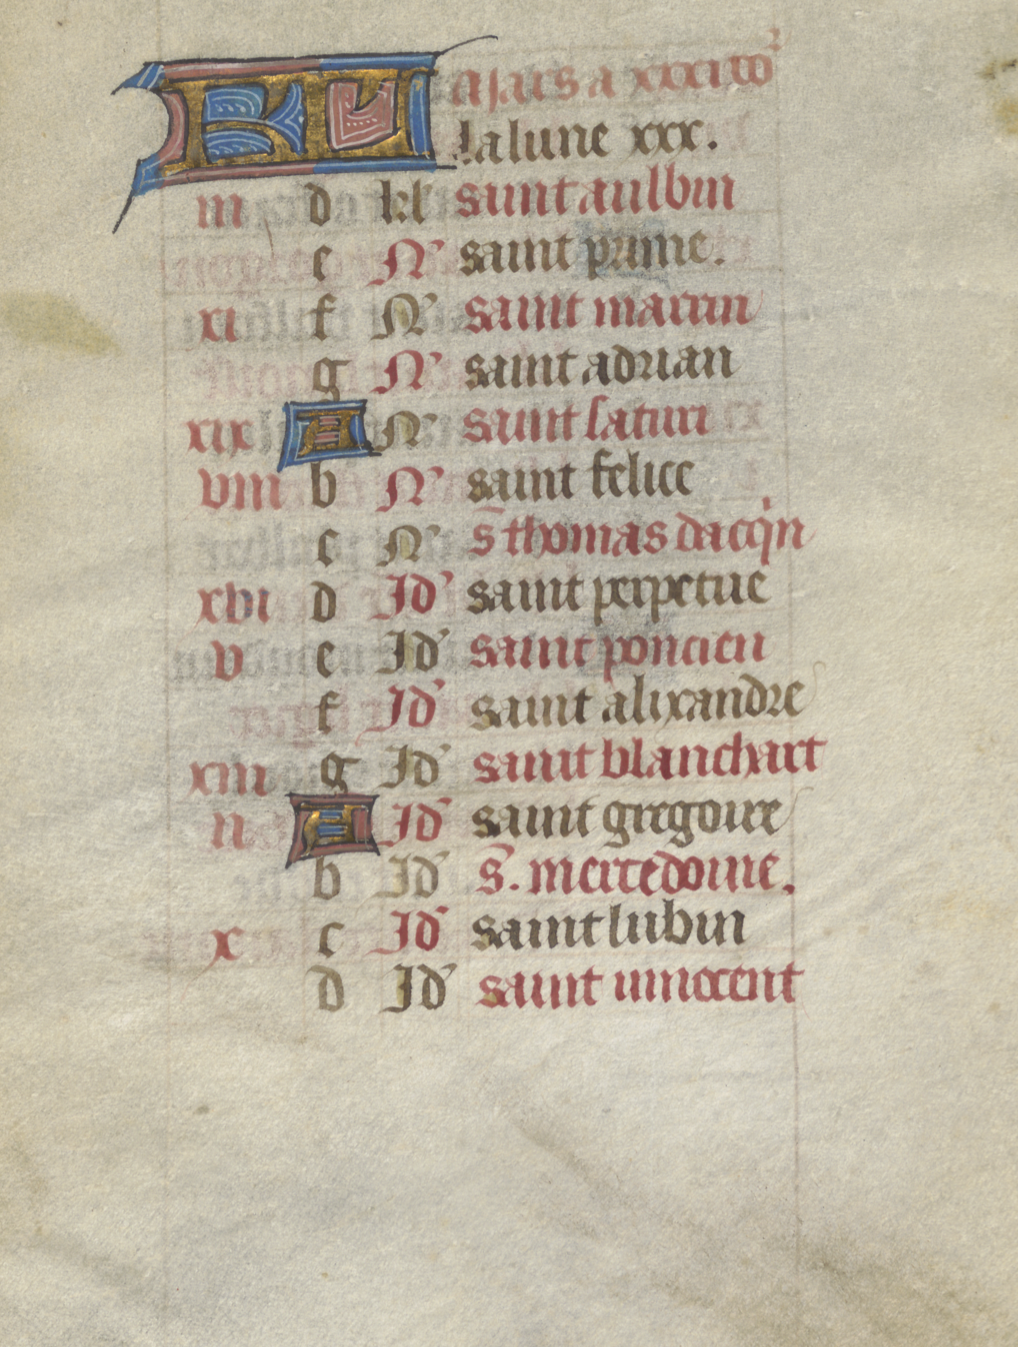 KL Mars a xxxi io2
la lune xxx.
iii d kl saint aulbin
e N' saint prime.
xi f N' saint martin
g N' saint adrian
xix A N' saint satiri
viii b N' saint felice
c N' s̄ thomas dacq̇n
xvi d Id' saint perpetue
v e Id' saint poncien
f Id' saint alixandre
xiii g Id' saint blanchart
ii A Id' saint gregoire
b Id' s̄. mercedoine.
x c Id' saint lubin
d Id' saint innocent